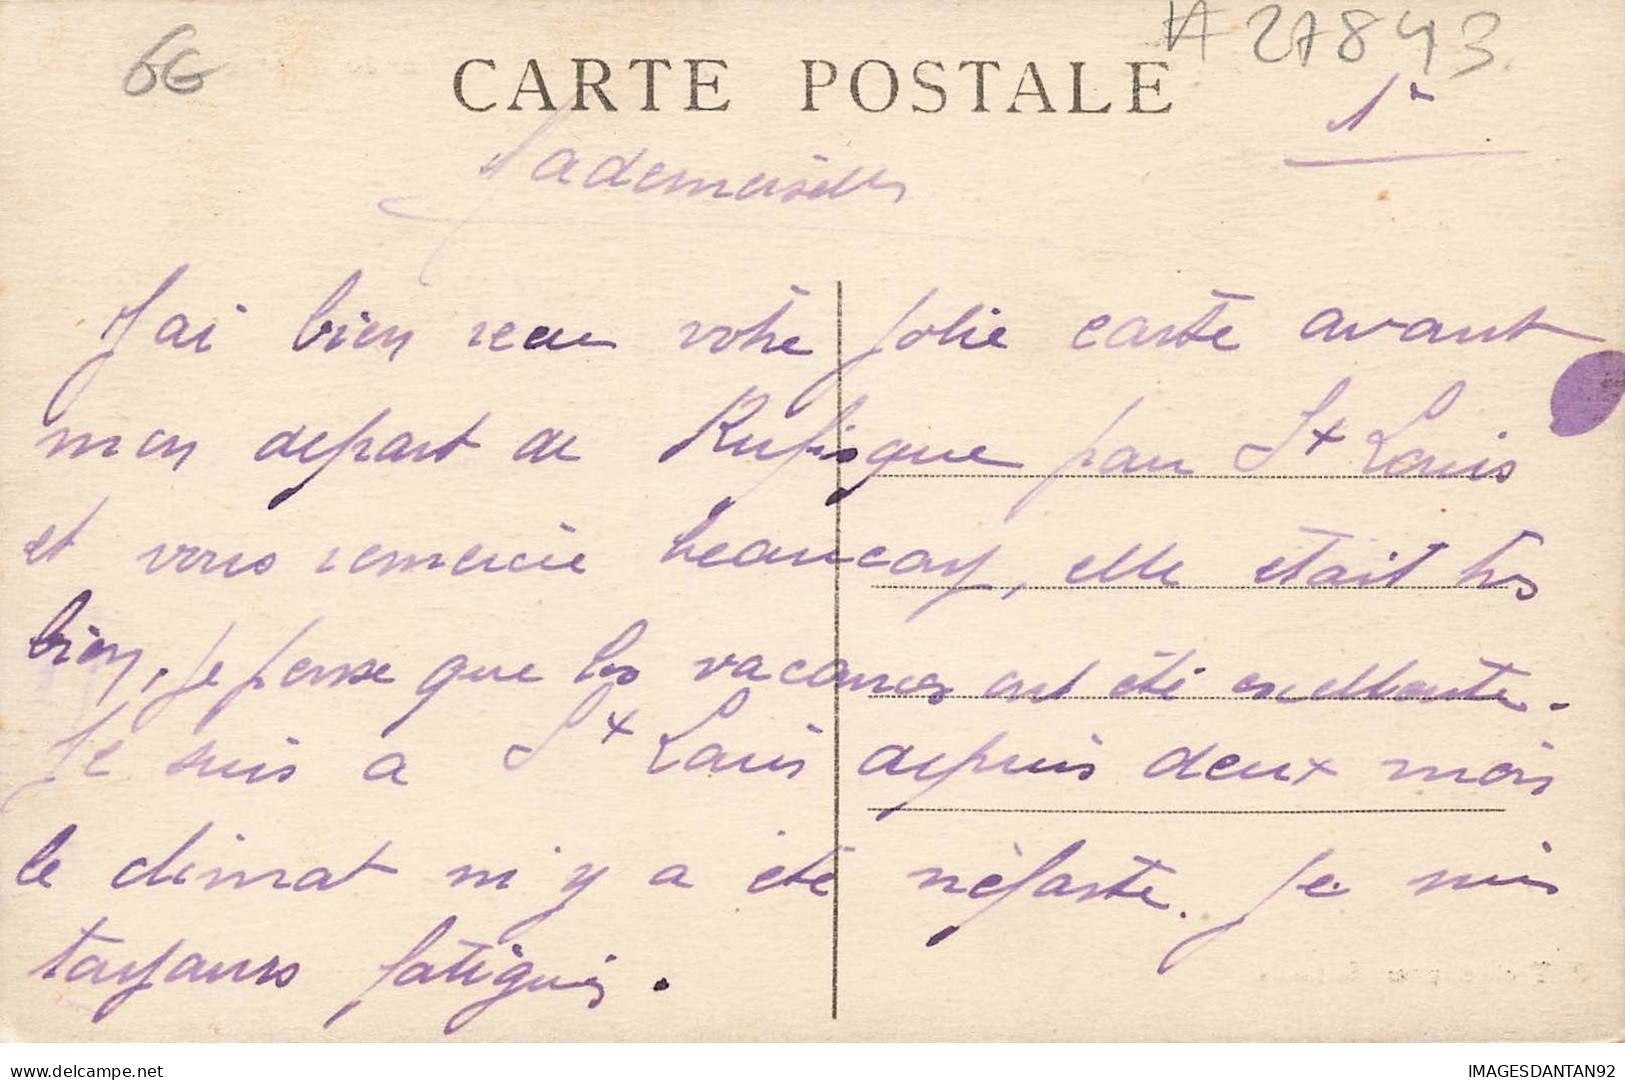 6G
A 27843
CARTE POSTALE
1-
Mademoiselle
J'ai bien reçu votre jolie carte avant
mon depart de Rufisque pour St Louis
et vous remercie beaucoup, elle était très
bien, je pense que les vacances ont été excellente.
Je suis a St Louis depuis deux mois
le climat m'y a été néfaste. Je suis
toujours fatigués.
delcampe.net
IMAGESDANTAN92